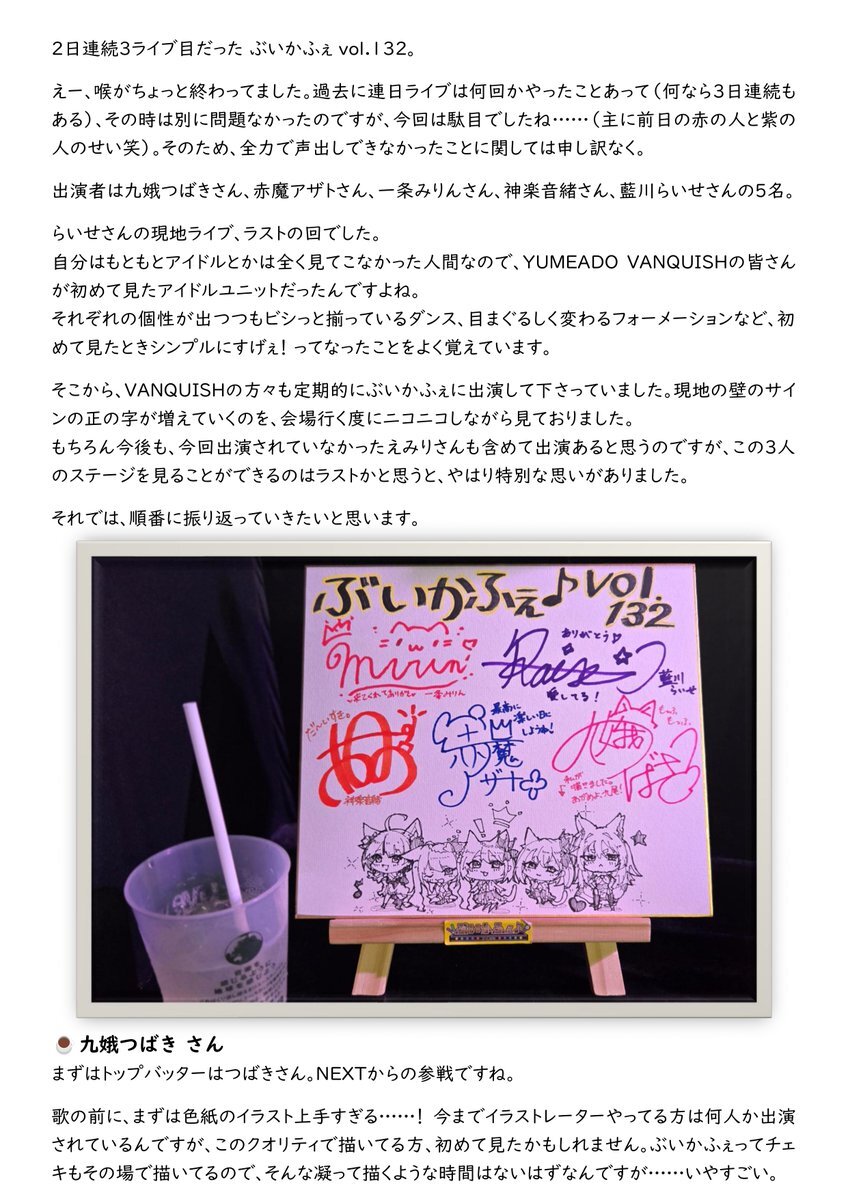 2日連続3ライブ目だった ぶいかふぇ vol.132。
えー、喉がちょっと終わってました。過去に連日ライブは何回かやったことあって（何なら3日連続も
ある）、その時は別に問題なかったのですが、今回は駄目でしたね……（主に前日の赤の人と紫の
人のせい笑）。そのため、全力で声出しできなかったことに関しては申し訳なく。
出演者は九娥つばきさん、赤魔アザトさん、一条みりんさん、神楽音緒さん、藍川らいせさんの5名。
らいせさんの現地ライブ、ラストの回でした。
自分はもともとアイドルとかは全く見てこなかった人間なので、YUMEADO VANQUISHの皆さん
が初めて見たアイドルユニットだったんですよね。
それぞれの個性が出つつもビシっと揃っているダンス、目まぐるしく変わるフォーメーションなど、初
めて見たときシンプルにすげぇ！ってなったことをよく覚えています。
そこから、VANQUISHの方々も定期的にぶいかふぇに出演して下さっていました。現地の壁のサイ
ンの正の字が増えていくのを、会場行く度にニコニコしながら見ておりました。
もちろん今後も、今回出演されていなかったえみりさんも含めて出演あると思うのですが、この3人
のステージを見ることができるのはラストかと思うと、やはり特別な思いがありました。
それでは、順番に振り返っていきたいと思います。
ぶいかふぇ♪vol.
132
ありがとう
mirin
藍川
らいせ
来てくれてありがと 一条みりん
愛してる！
だ〜いすき。
最高に
楽しい日に
しようね！
もっふ
もっふ
赤魔
アザト
九娥
つばき
神楽音緒
私が
描きました。
あがめよ、九尾！
九娥つばき さん
まずはトップバッターはつばきさん。NEXTからの参戦ですね。
歌の前に、まずは色紙のイラスト上手すぎる……！ 今までイラストレーターやってる方は何人か出演
されているんですが、このクオリティで描いてる方、初めて見たかもしれません。ぶいかふぇってチェ
キもその場で描いてるので、そんな凝って描くような時間はないはずなんですが……いやすごい。